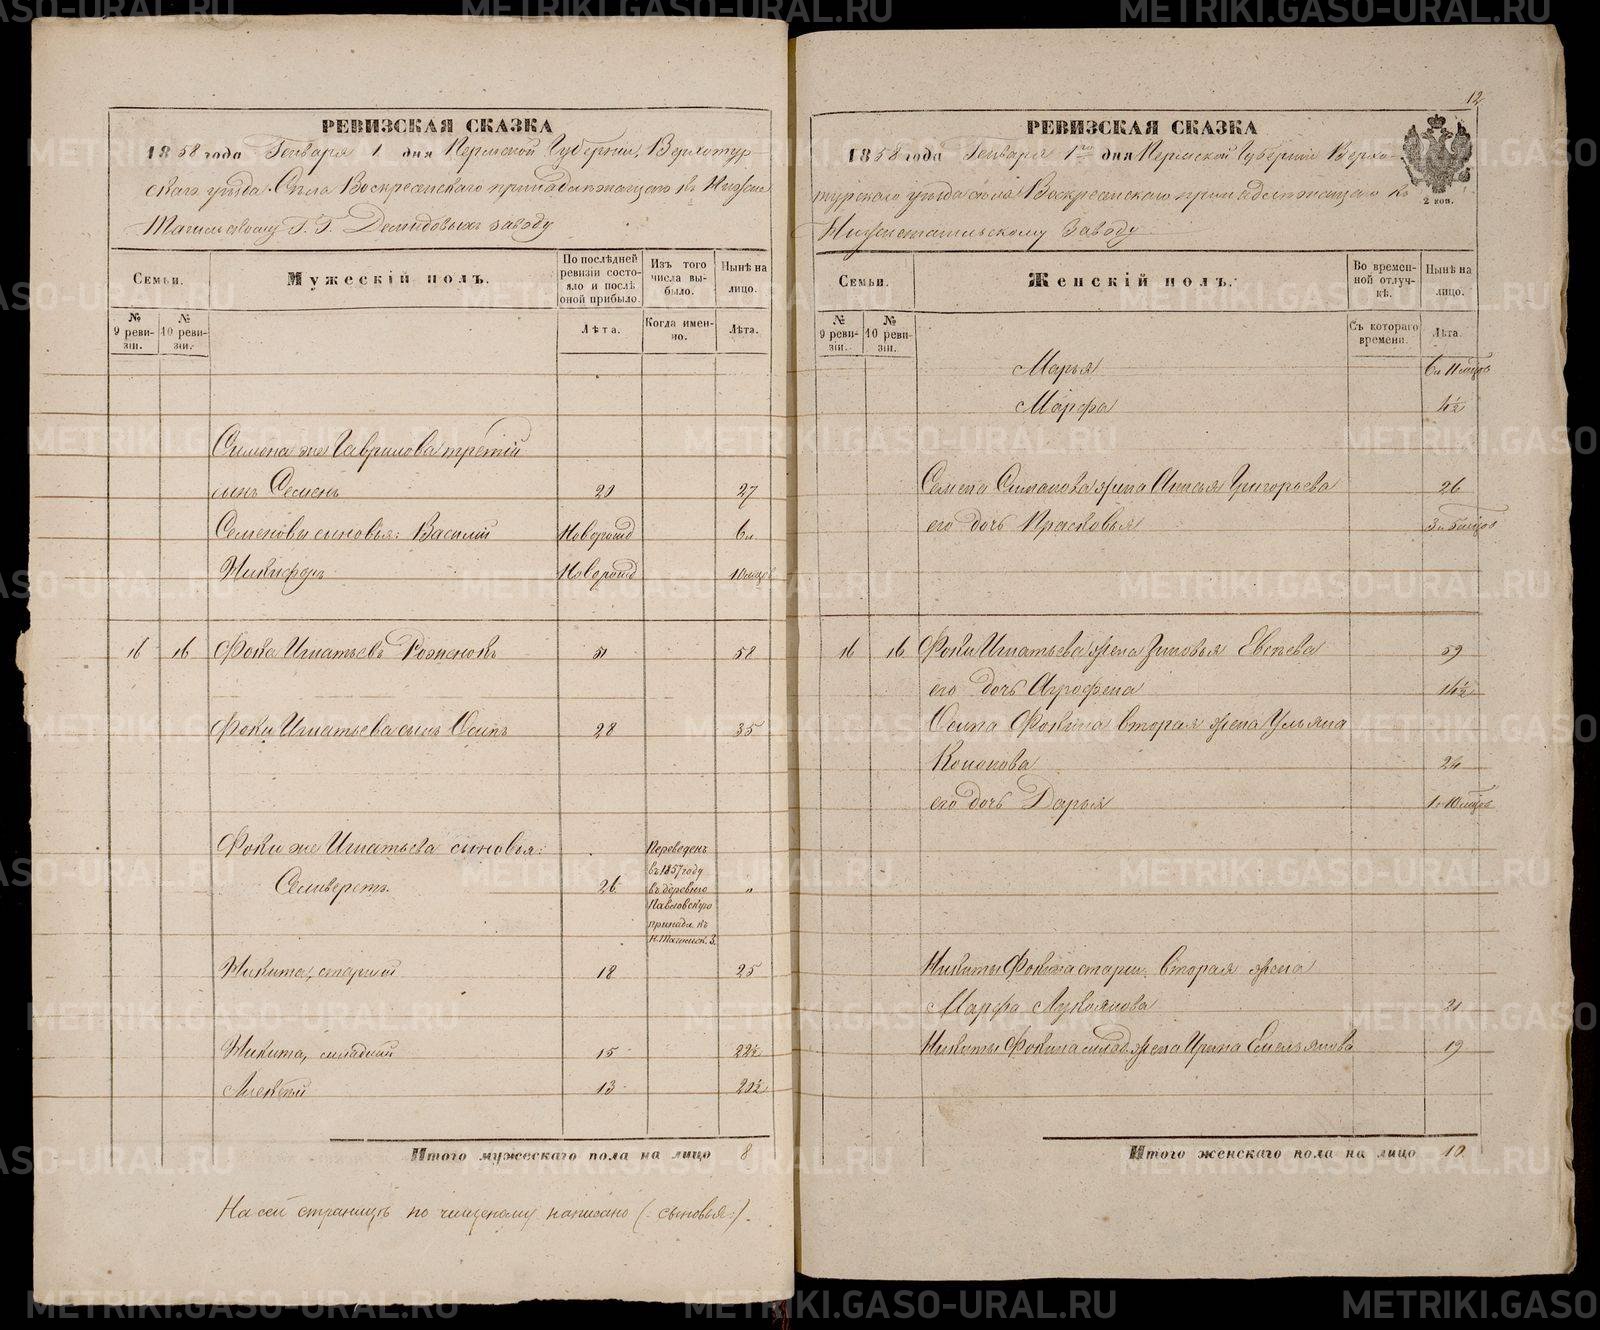 РЕВИЗСКАЯ СКАЗКА
1858 года Генваря 1 дня Пермской Губернии, Верхотур
скаго уѣзда Села Воскресенскаго принадлежащаго къ Нижне
Тагильскому Г.Г. Демидовыхъ заводу
Семьи.
Мужескій полъ.
По послѣдней ревизіи состояло и послѣ оной прибыло.
Изъ того числа выбыло.
Нынѣ на лицо.
№ 9 ревизіи.
№ 10 ревизіи.
Лѣта.
Когда именно.
Лѣта.
Симона же Гаврилова третій
сынъ Семенъ 20 27
Семеновы сыновья: Василій Новорожд 6 л.
Никифоръ Новорожд 10 мцов
16 16 Фока Игнатьевъ Роженовъ 51 58
Фоки Игнатьева сынъ Осипъ 28 35
Фоки же Игнатьева сыновья:
Селиверстъ 26 Переведенъ въ 1857 году въ деревню Павловскую принадл. къ Н. Тагильск. З. „
Никита, старшій 18 25
Никита, младшій 15 22½
Алексѣй 13 20½
Итого мужескаго пола на лицо 8
На сей страницѣ по чищеному написано (: сыновья :).
12
РЕВИЗСКАЯ СКАЗКА
1858 года Генваря 1го дня Пермской Губерніи Верхо-
турскаго уѣзда села Воскресенскаго принадлежащаго къ
Нижнетагильскому заводу
2 коп.
Семьи.
Женскій полъ.
Во временной отлучкѣ.
Нынѣ на лицо.
№ 9 ревизіи.
№ 10 ревизіи.
Съ котораго времени.
Лѣта.
Марья 6 л 11 мцов
Марфа 4½
Семена Симонова жена Анисья Григорьева 26
его дочь Прасковья
16 16 Фоки Игнатьева жена Зиновья Евсѣева 59
его дочь Агрофена 14½
Осипа Фокина вторая жена Ульяна
Кононова 24
его дочь Дарья 1 л 10 мцов
Никиты Фокина старш. вторая жена
Марфа Лукоянова 21
Никиты Фокина млад. жена Ирина Емельянова 19
Итого женскаго пола на лицо 10
METRIKI.GASO-URAL.RU